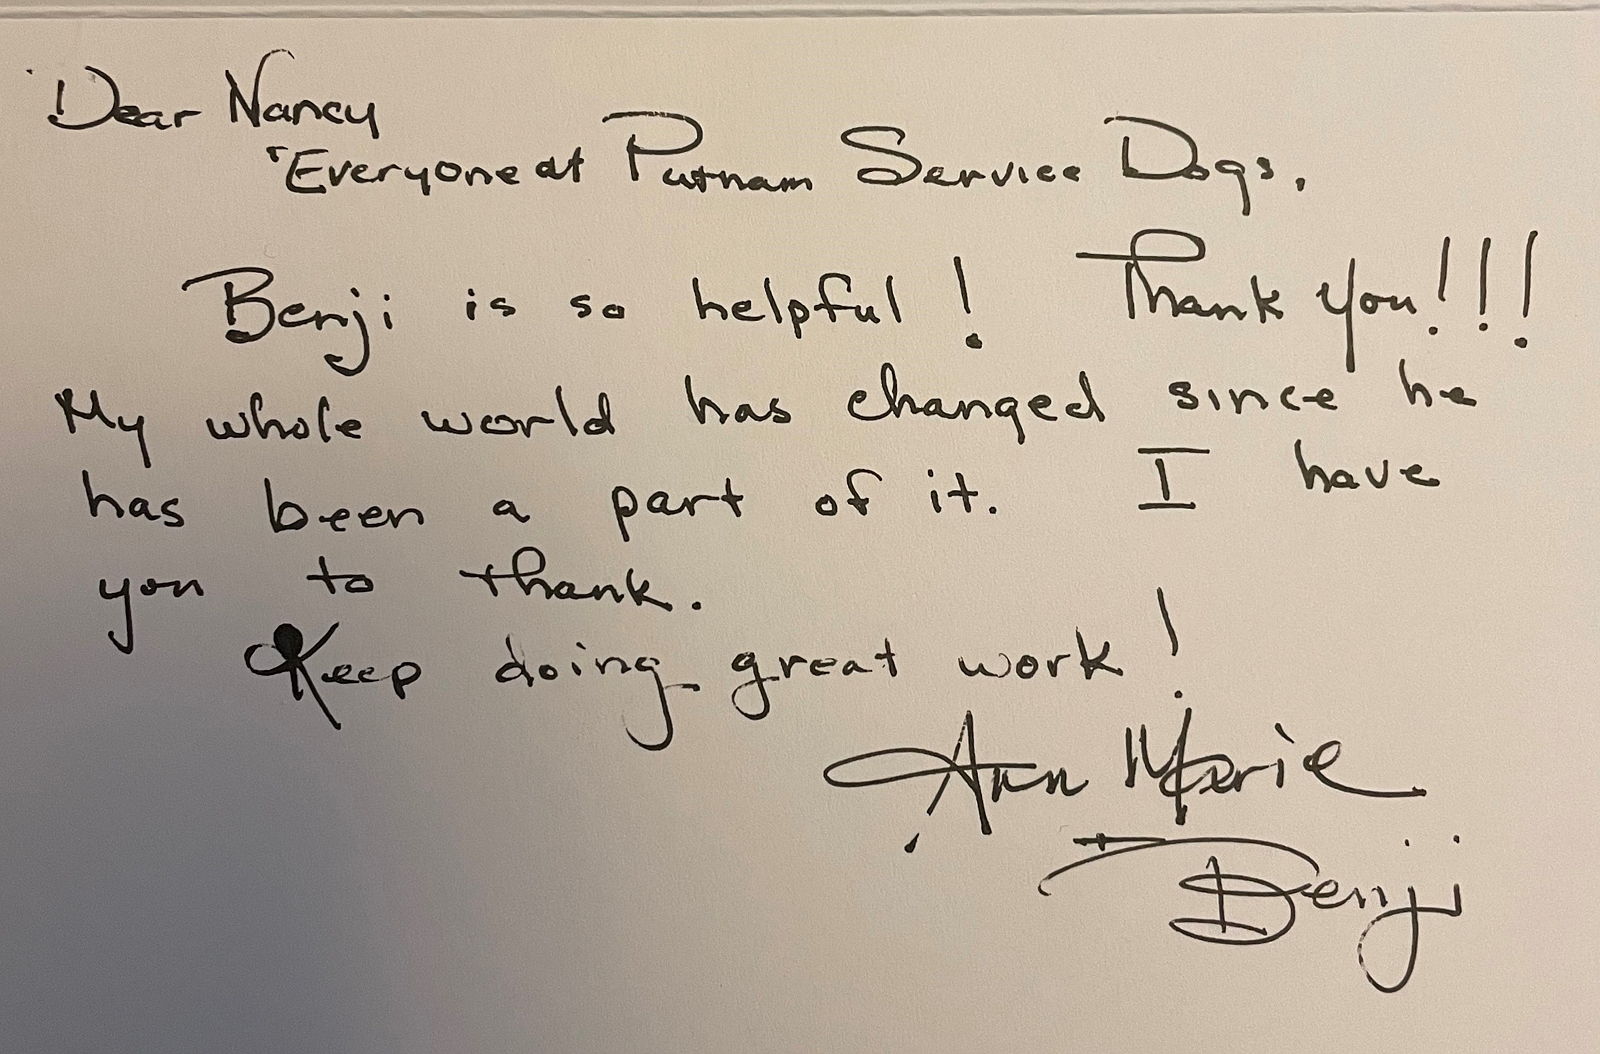 Dear Nancy
Everyone at Putnam Service Dogs,
Benji is so helpful! Thank you!!!
My whole world has changed since he
has been a part of it. I have
you to thank.
Keep doing great work!
Ann Marie
+ Benji